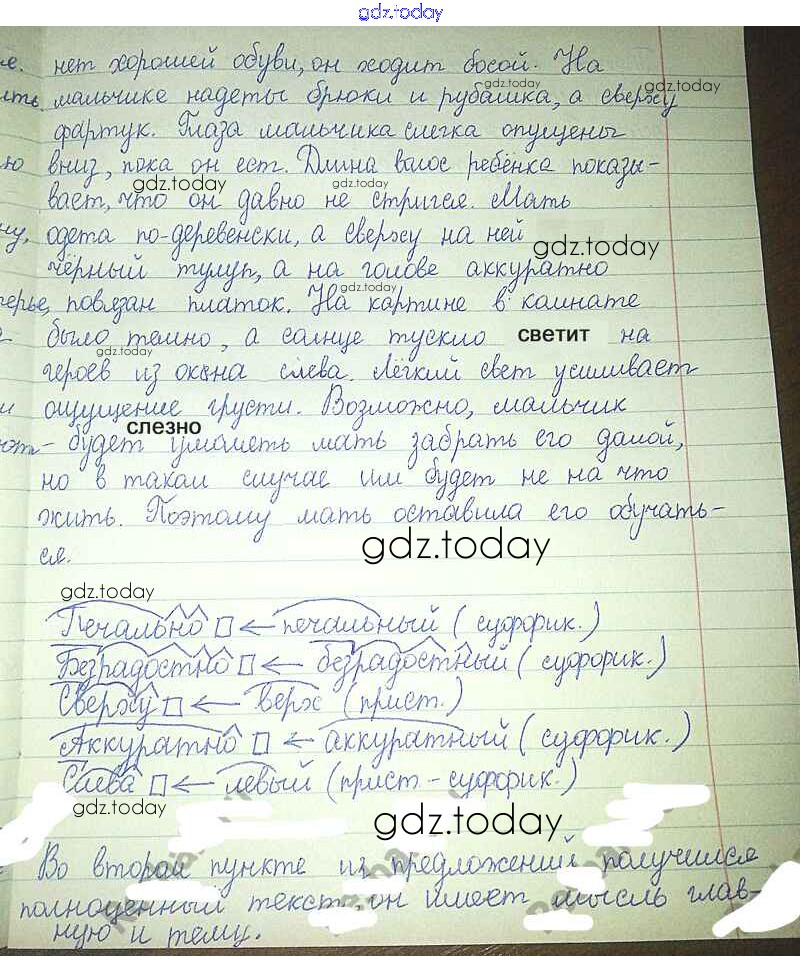 gdz.today
е. нет хорошей обуви, он ходит босой. На
ить мальчике надеты брюки и рубашка, а сверху
фартук. Глаза мальчика слегка опущены
ю вниз, пока он ест. Длина волос ребёнка показы-
вает, что он давно не стригся. Мать
ну, одета по-деревенски, а сверху на ней
чёрный тулуп, а на голове аккуратно
повязан платок. На картине в комнате
было темно, а солнце тускло светит на
героев из окна слева. Лёгкий свет усиливает
и ощущение грусти. Возможно, мальчик
слезно
будет умолять мать забрать его домой,
но в таком случае им будет не на что
жить. Поэтому мать оставила его обучать-
ся.
gdz.today
gdz.today
Печально ← печальный (суффик.)
Безрадостно ← безрадостный (суффик.)
Сверху ← верх (прист.)
Аккуратно ← аккуратный (суффик.)
Слева ← левый (прист-суффик.)
gdz.today
gdz.today
Во втором пункте из предложений получился
полноценный текст, он имеет мысль глав-
ную и тему.